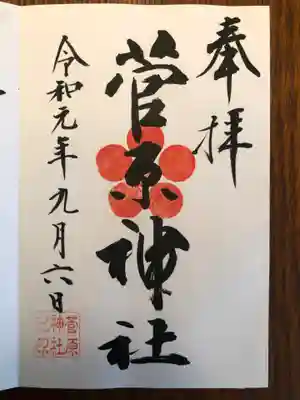 奉拝
菅原神社
令和元年九月六日
菅原
神社
之印